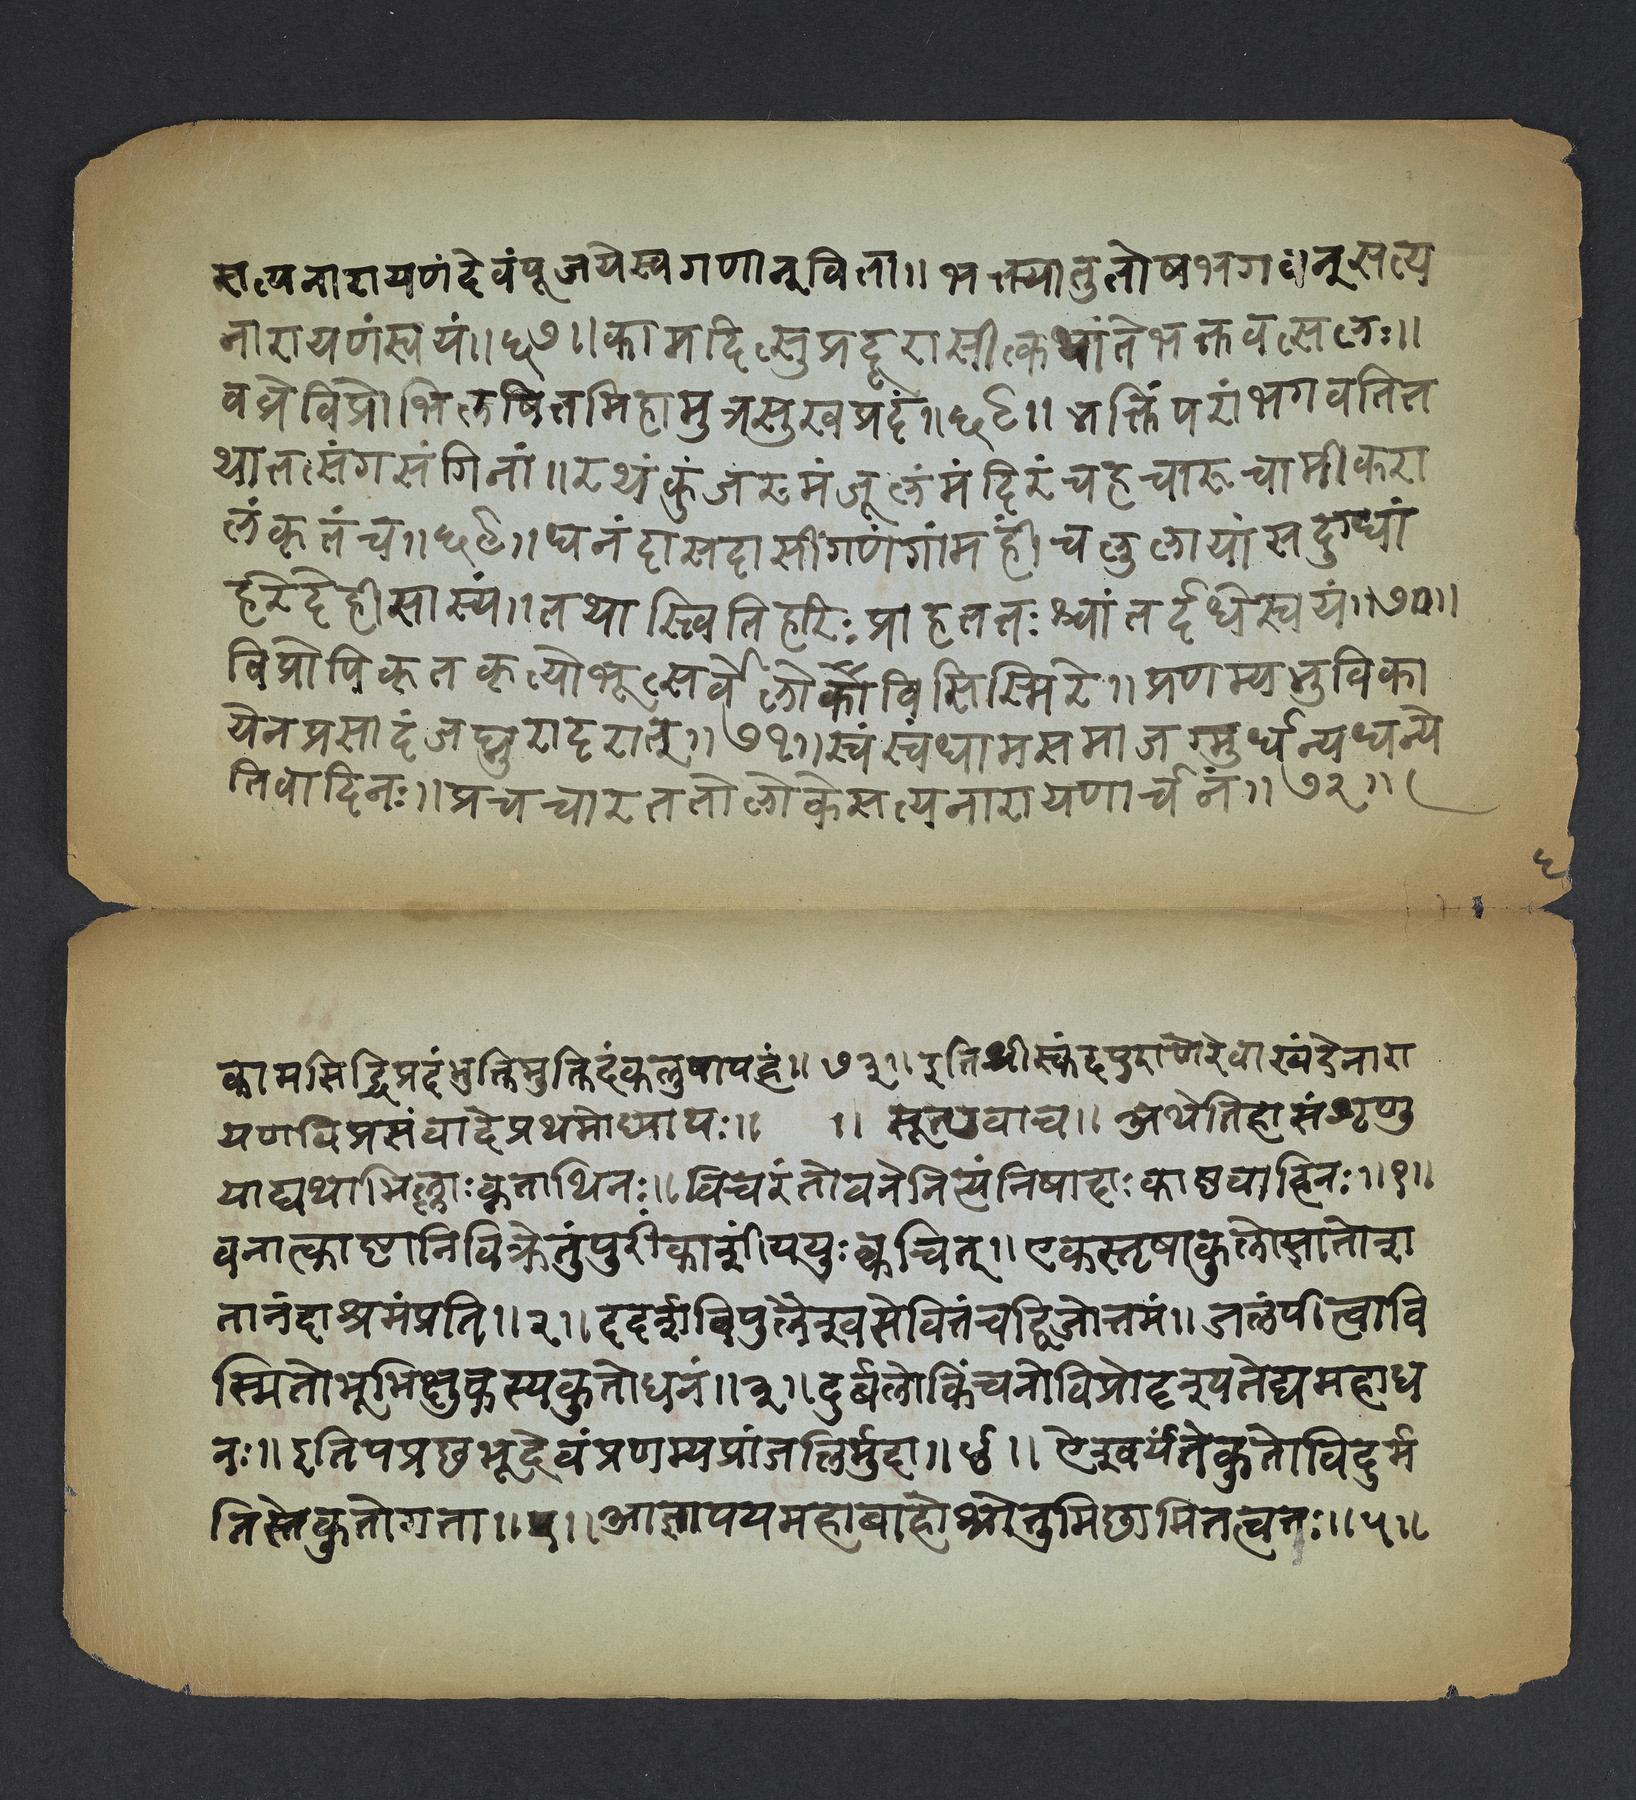 सत्यनारायणंदेवंपूजयेस्वगणान्विता॥ भक्त्यातुतोषभगवान्सत्य
नारायणंस्वयं॥६७॥कामदित्सुप्रदूरासीत्कथांतेभक्तवत्सलः॥
वव्रेविप्रोभिलषितमिहामुत्रसुखप्रदं॥६८॥ भक्तिंपरांभगवतित
थातत्संगसंगिनां॥रथंकुंजरमंजूलंमंदिरंचहचारूचामीकरा
लंकृतंच॥६९॥धनंदासदासींगणंगांमहींचलुलायांसदुग्धां
हरेदेहीसास्यं॥तथास्त्वितिहरिःप्राहततःश्चांतर्दधेस्वयं॥७०॥
विप्रोपिकृतकृत्योभूत्सर्वेलोकोविसिस्मिरे॥प्रणम्यभुविका
येनप्रसादंजघ्नुरादरात्॥७१॥स्वंस्वंधामसमाजग्मुर्धन्यधन्ये
तिवादिनः॥प्रचचारततोलोकेसत्यनारायणार्चनं॥७२॥
६
कामसिद्धिप्रदंभुक्तिमुक्तिदंकलुषापहं॥७३॥इतिश्रीस्कंदपुराणेरेवाखंडेनारा
यणविप्रसंवादेप्रथमोध्यायः॥ १। सूतउवाच॥ अथेतिहासंशृणु
याद्यथाभिल्लाःकृताथिनः॥विचरंतोवनेनित्यंनिषादाःकाष्ठवाहिनः॥१॥
वनात्काष्टानिविक्रेतुंपुरींकाशींययुःक्वचित्॥एकस्तृषाकुलोस्नातोशा
तानंदाश्रमंप्रति॥२॥ददर्शविपुलैश्वसेवितंचद्विजोत्तमं॥जलंपीत्वावि
स्मितोभूभिक्षुकस्यकुतोधनं॥३॥दुर्बलोकिंचनोविप्रोदृश्यतेद्यमहाध
नः॥इतिपप्रछभूदेवंप्रणम्यप्रांजलिर्मुदा॥४॥ ऐश्वर्यंतेकुतोविदुर्म
तिस्तेकुतोगता॥५॥आज्ञापयमहाबाहोश्रोतुमिछामितत्वतः॥५॥